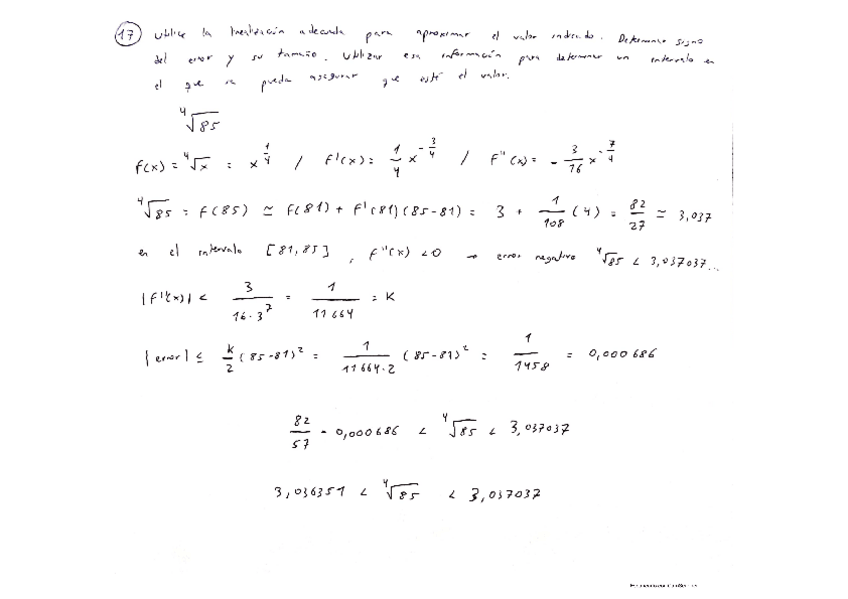 17 Utilice la linealización adecuada para aproximar el valor indicado. Determinar signo
del error y su tamaño. Utilizar esa información para determinar un intervalo en
el que se pueda asegurar que esté el valor.
⁴√85
F(x) = ⁴√x = x^(1/4) / F'(x) = 1/4 x^(-3/4) / F''(x) = - 3/16 x^(-7/4)
⁴√85 = F(85) ≃ F(81) + F'(81)(85-81) = 3 + 1/108 (4) = 82/27 ≃ 3,037
en el intervalo [81,85], F''(x) < 0 → error negativo ⁴√85 < 3,037037...
|F''(x)| < 3/(16·3^7) = 1/11664 = K
|error| ≤ K/2 (85-81)² = 1/(11664·2) (85-81)² = 1/1458 = 0,000686
82/57 - 0,000686 < ⁴√85 < 3,037037
3,036351 < ⁴√85 < 3,037037